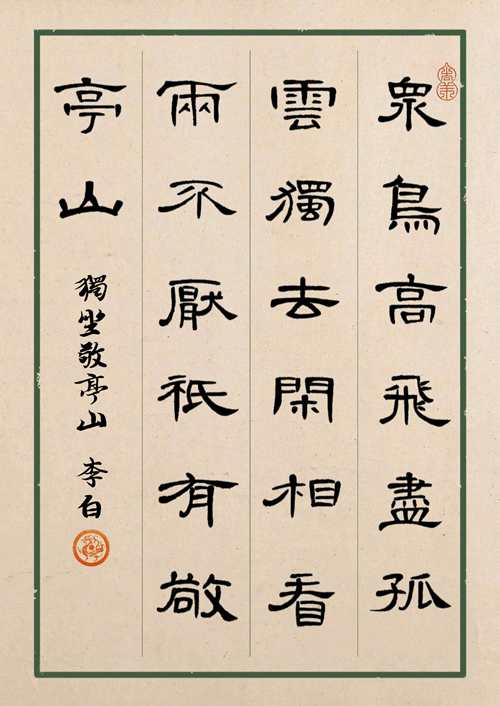 眾鳥高飛盡孤
雲獨去閑相看
兩不厭祇有敬
亭山
獨坐敬亭山 李白